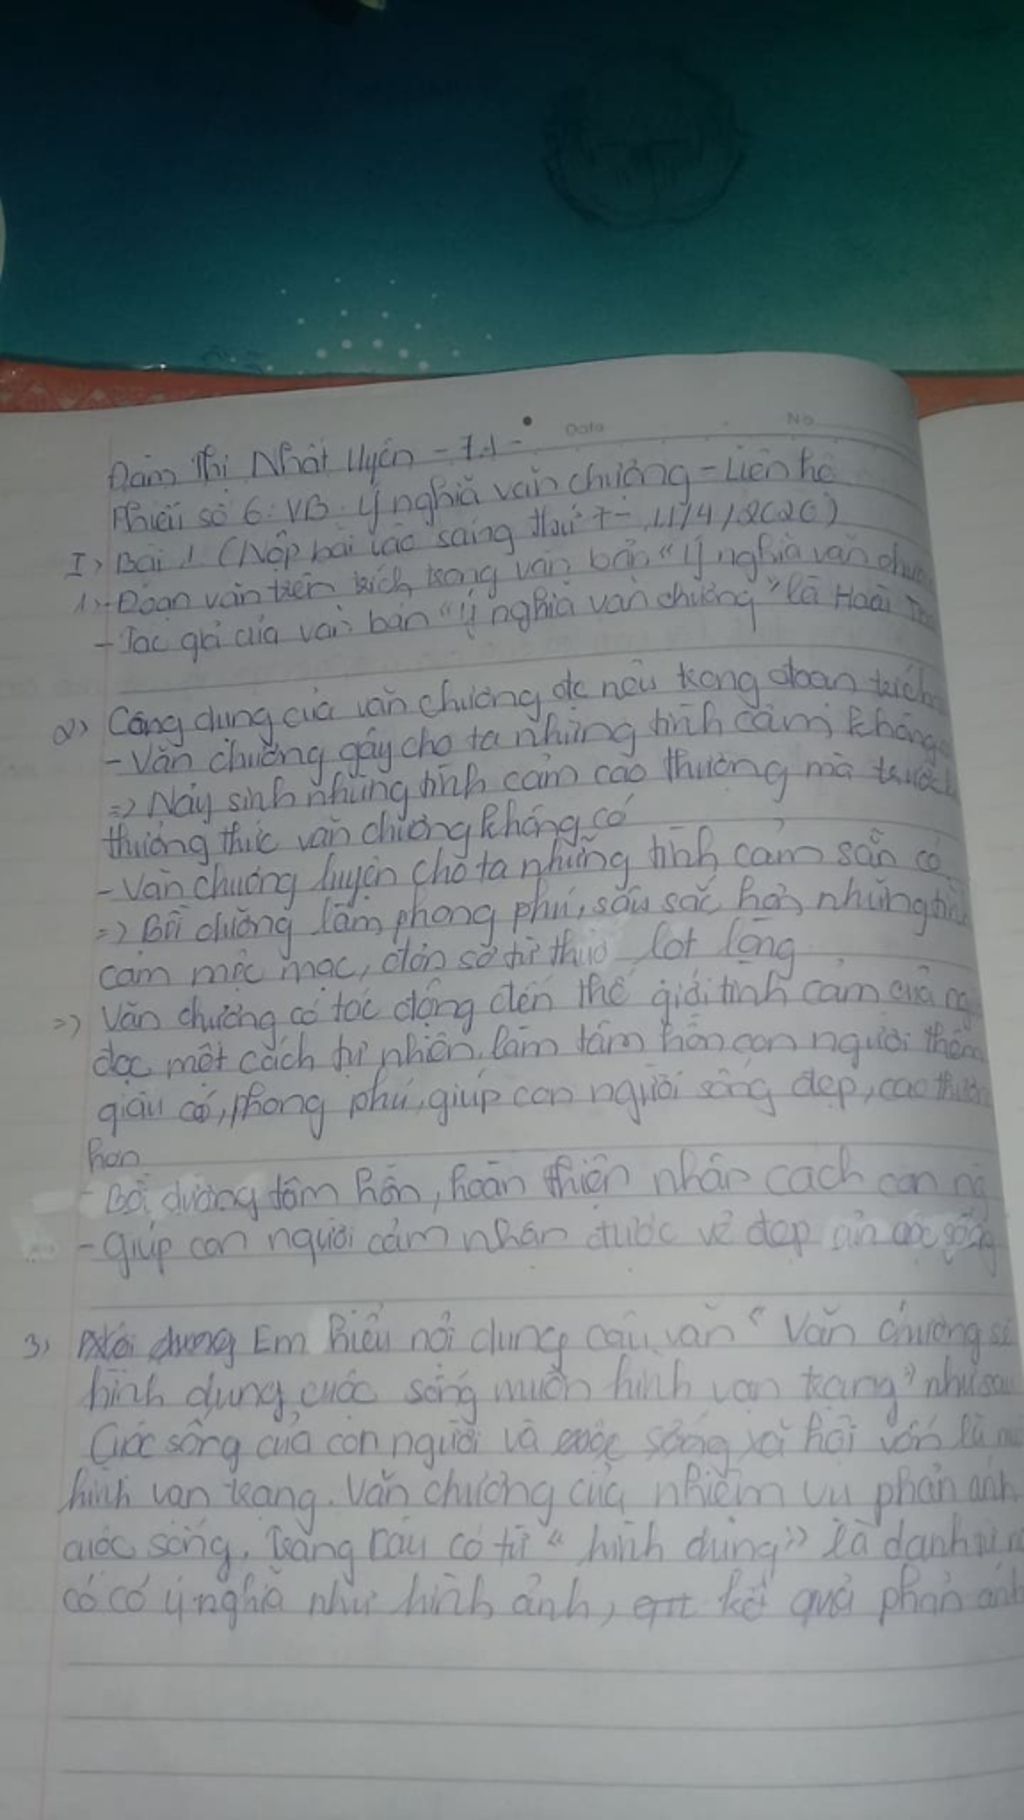 Date No
Đàm Thị Nhật Uyên - 7A -
Phiếu số 6: VB: Ý nghĩa văn chương - Liên hệ
I> Bài 1: (Nộp bài vào sáng thứ 7 - 11/4/2020)
1> - Đoạn văn trên trích trong văn bản "Ý nghĩa văn
- Tác giả của văn bản "Ý nghĩa văn chương" là Hoài
2> Công dụng của văn chương đc nêu trong đoạn trích
- Văn chương gây cho ta những tình cảm không
=> Nảy sinh những tình cảm cao thượng mà trước
thưởng thức văn chương không có
- Văn chương luyện cho ta những tình cảm sẵn có
=> Bồi dưỡng làm phong phú, sâu sắc hơn những
cảm mộc mạc, đơn sơ từ thuở lọt lòng
=> Văn chương có tác động đến thế giới tình cảm của
đọc một cách tự nhiên, làm tâm hồn con người thêm
giàu có, phong phú, giúp con người sống đẹp, cao thượng
hơn
- Bồi dưỡng tâm hồn, hoàn thiện nhân cách con
- giúp con người cảm nhận được vẻ đẹp
3, Nội dung Em hiểu nội dung câu văn "Văn chương sẽ
hình dung cuộc sống muôn hình vạn trạng" như sau
Cuộc sống của con người và cuộc sống xã hội vốn là
hình vạn trạng. Văn chương của nhiệm vụ phản ánh
cuộc sống, trong câu có từ "hình dung" là danh từ
có có ý nghĩa như hình ảnh, kết quả phản ánh